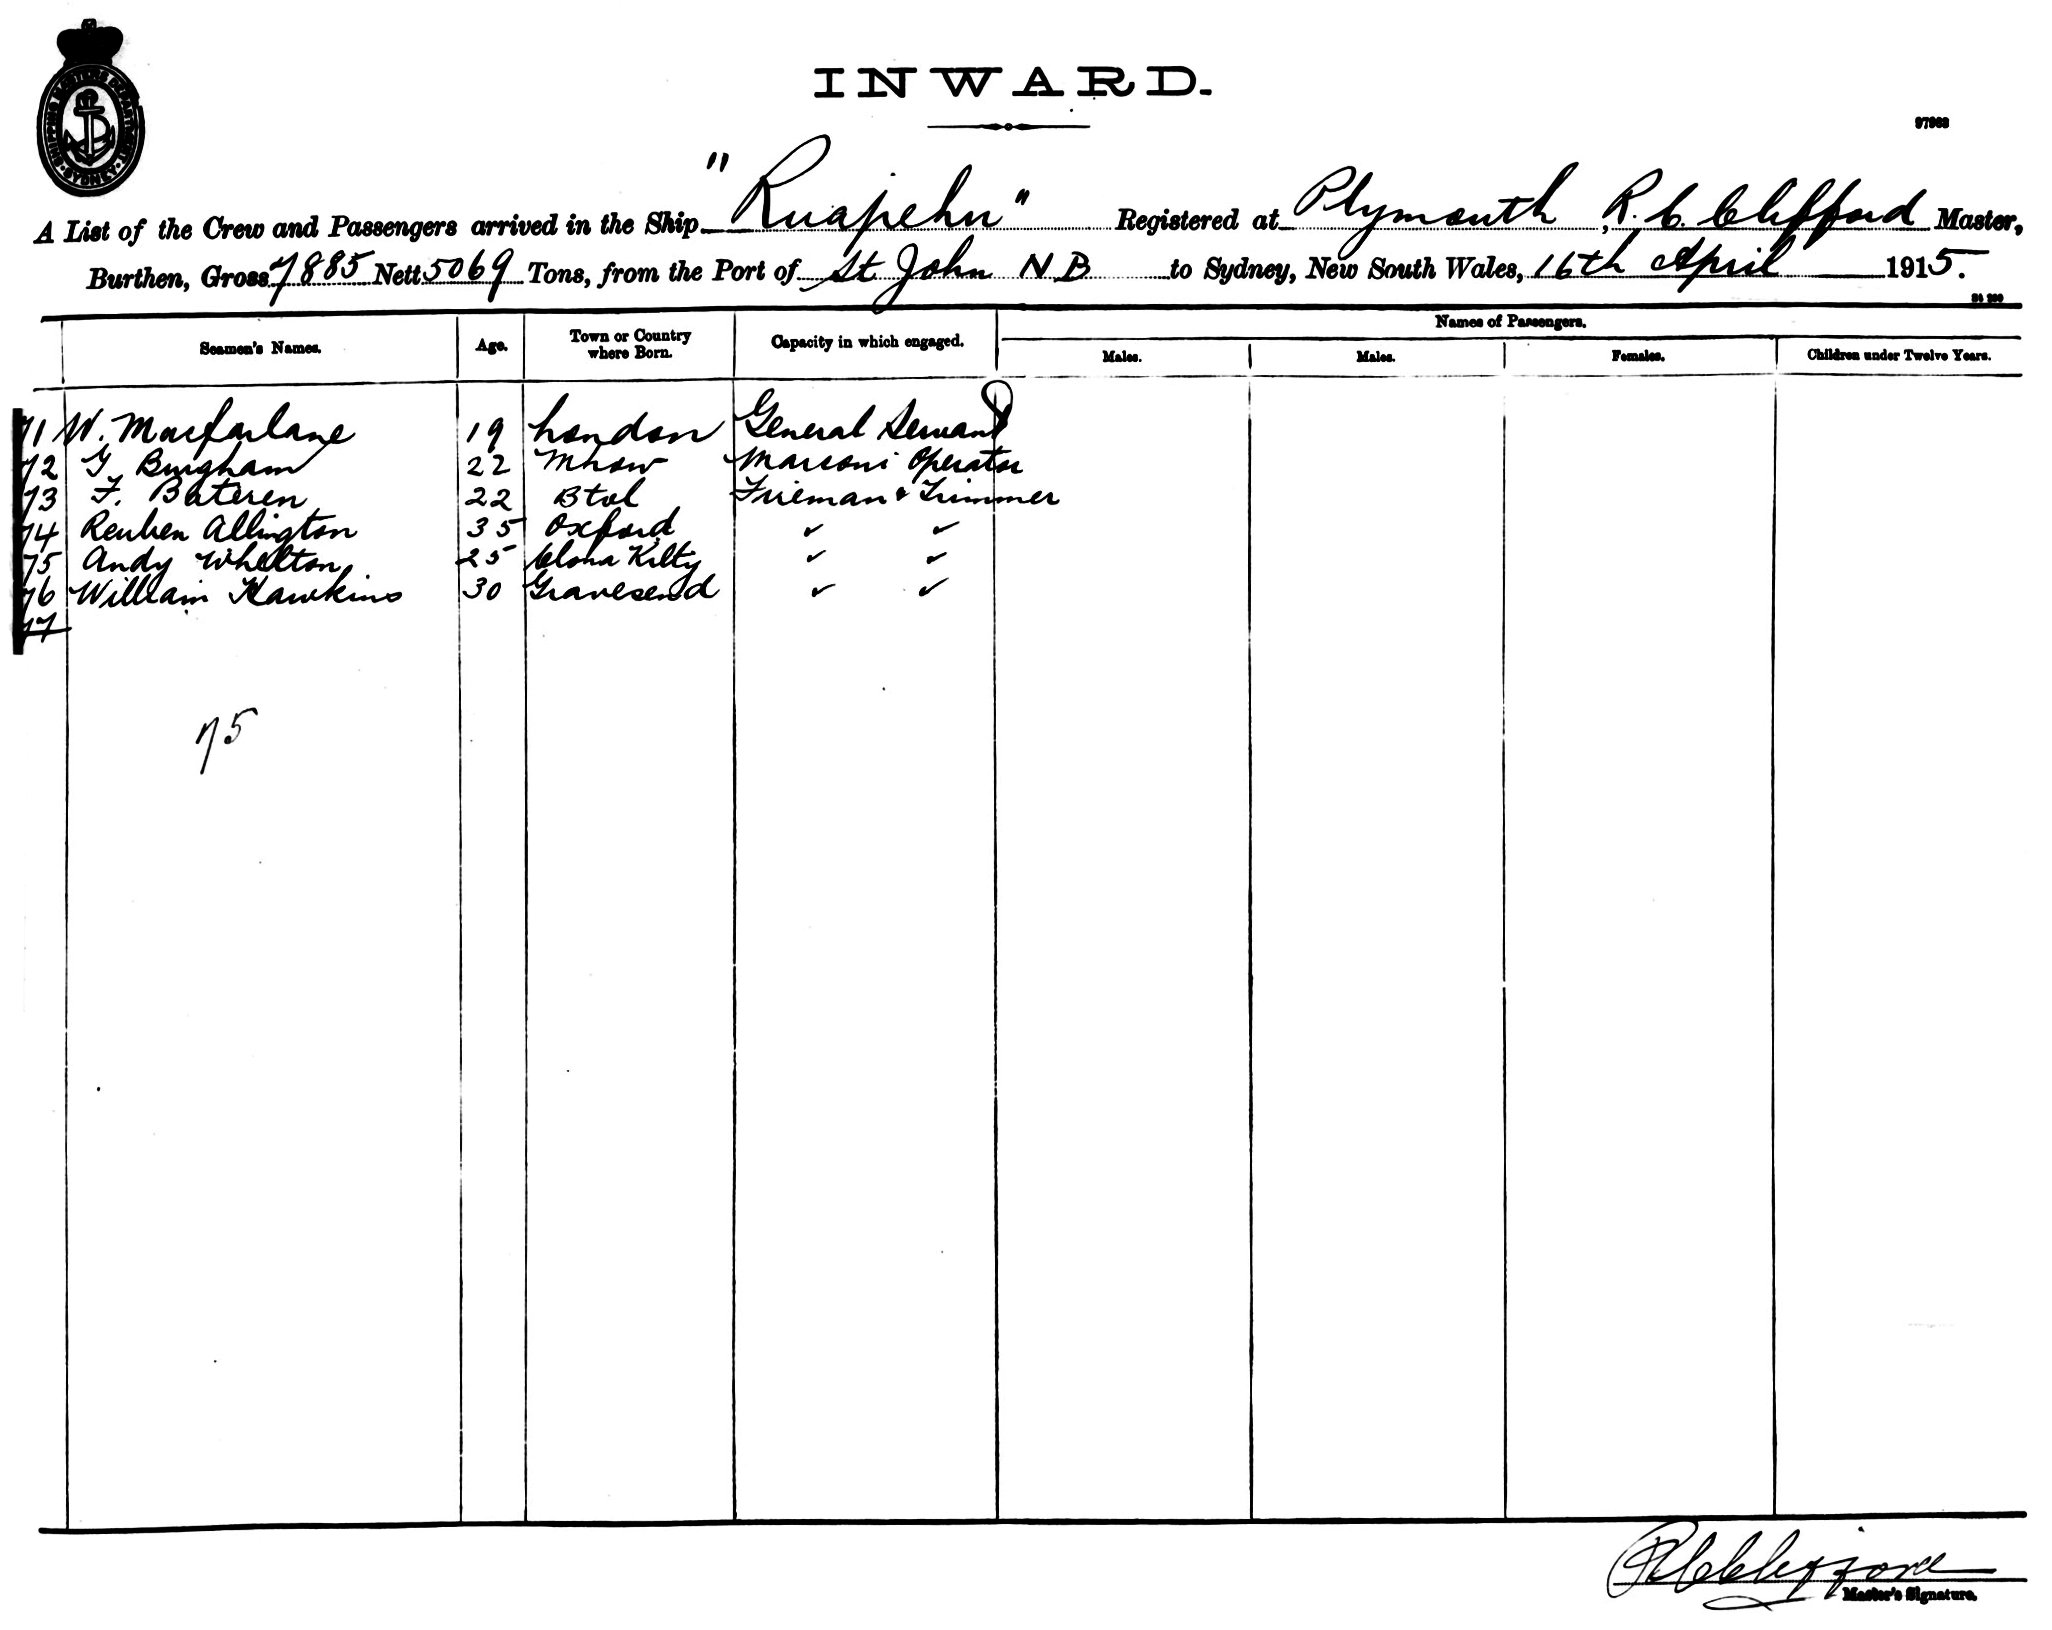 SHIPPING MASTERS DEPARTMENT · SYDNEY ·
INWARD.
97963
A List of the Crew and Passengers arrived in the Ship "Ruapehu" Registered at Plymouth, R. C. Clifford Master,
Burthen, Gross 7885 Nett 5069 Tons, from the Port of St John N B to Sydney, New South Wales, 16th April 1915.
Names of Passengers.
Seamen's Names. Age. Town or Country where Born. Capacity in which engaged. Males. Males. Females. Children under Twelve Years.
71 W. Macfarlane 19 London General Servant
72 G Burgham 22 Mhow Marconi Operator
73 F. Bateren 22 Btol Frieman & Trimmer
74 Reuben Allington 35 Oxford " "
75 Andy Whelton 25 Clona Kilty " "
76 William Hawkins 30 Gravesend " "
77
75
R C Clifford
Master's Signature.